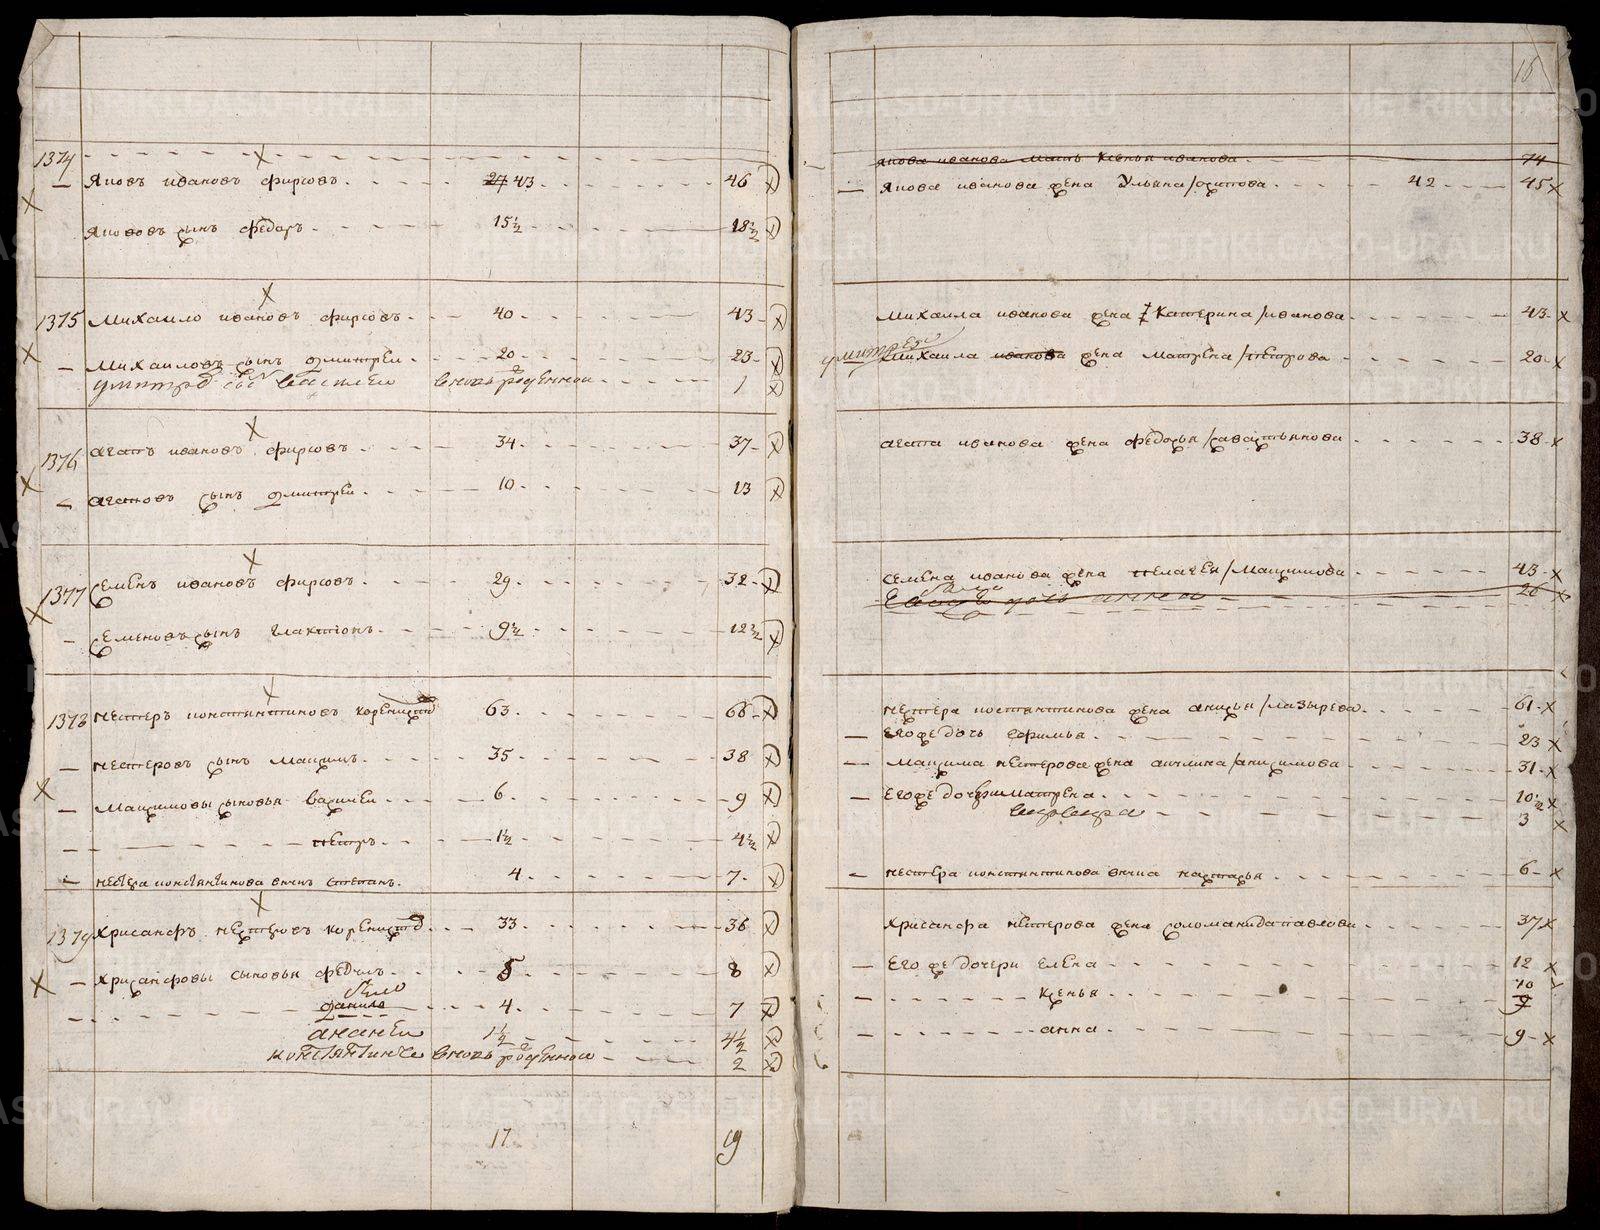 1374
Яковъ ивановъ фирсовъ 27 43 46
Яковъ сынъ федоръ 15½ 18½
1375 Михаило ивановъ фирсовъ 40 43
Михаиловъ сынъ дмитреи 20 23
василеи вновь рожденнои 1
1376 агапъ ивановъ фирсовъ 34 37
агаповъ сынъ дмитреи 10 13
1377 семенъ ивановъ фирсовъ 29 32
семеновъ сынъ галактионъ 9½ 12½
1378 нестеръ константиновъ 63 66
нестеровъ сынъ максимъ 35 38
максимовы сыновья василеи 6 9
петръ 1½ 4½
нестера константинова внукъ степанъ 4 7
1379 хрисанфъ нестеровъ 33 36
хрисанфовы сыновья федулъ 5 8
данило 4 7
ананеи 1½ 4½
вновь рожденнои 2
17 19
15
якова иванова мать ксенья иванова 74
якова иванова жена ульяна/осипова 42 45
михаила иванова жена катерина/иванова 43
михаила иванова жена матрена/петрова 20
агапа иванова жена федосья/савастьянова 38
семена иванова жена пелагея/максимова 43
дочь 26
нестера константинова жена анисья/лазырева 61
его же дочь ефимья 23
максима нестерова жена акилина/анисимова 31
его же дочери матрена 10½
3
нестера константинова внука настасья 6
хрисанфа нестерова жена соломанида павлова 37
его же дочери елена 12
ксенья 10
9
анна 9
METRIKI.GASO-URAL.RU